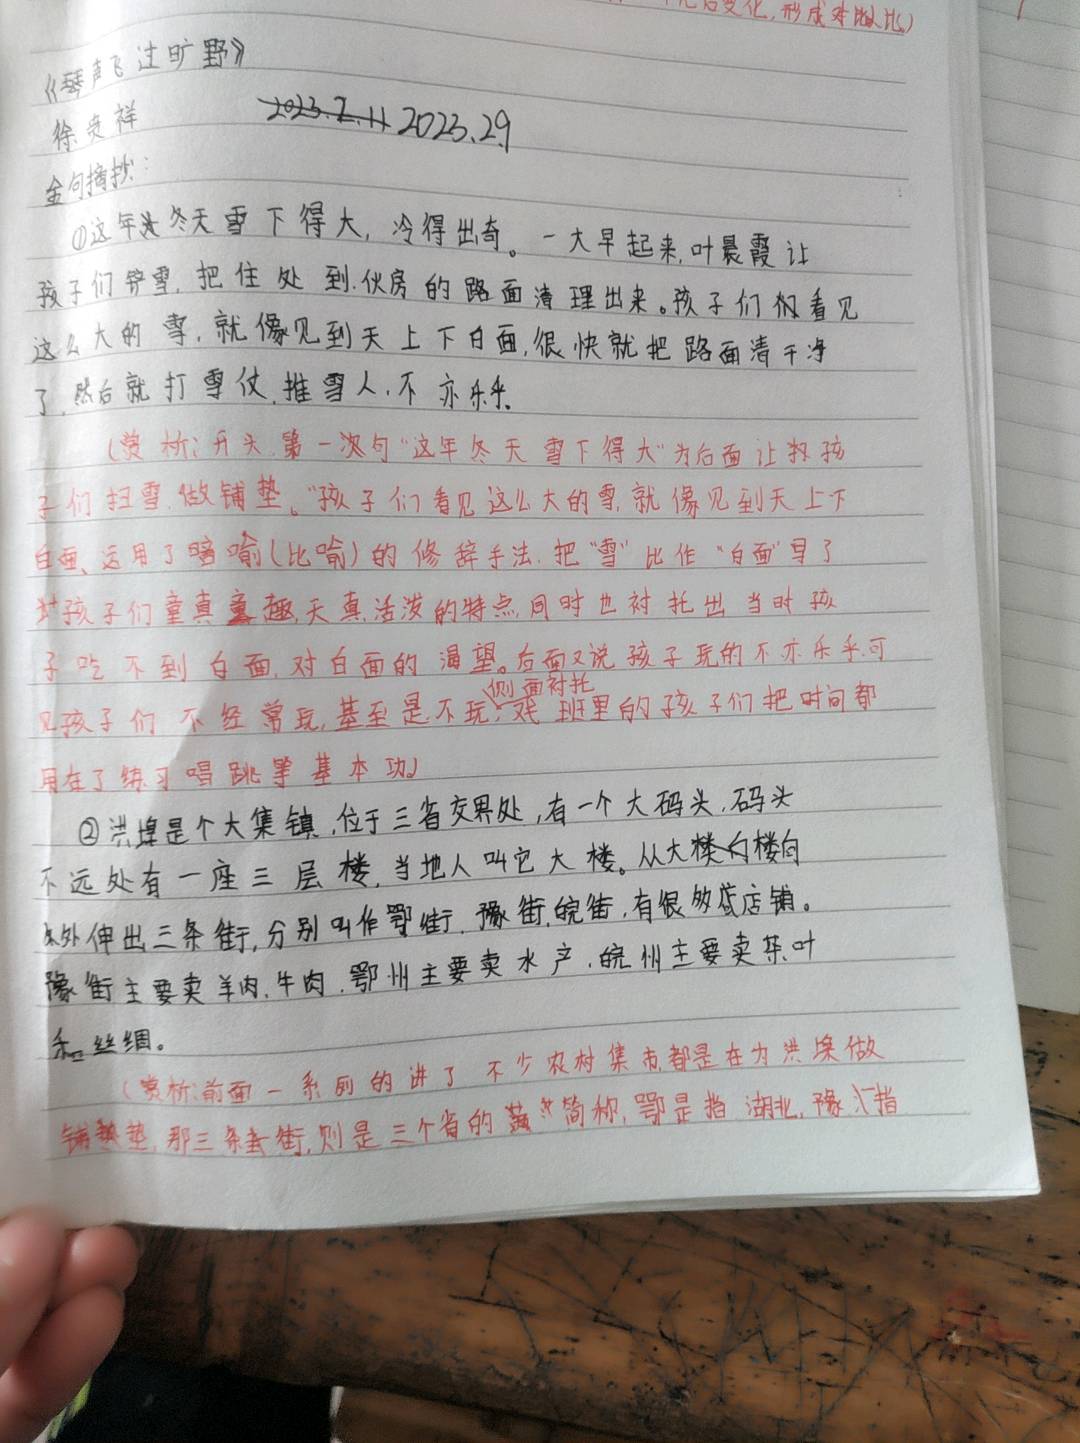 后变化,形成对比)
《琴声飞过旷野》
徐贵祥
2023.2.11 2023.2.9
金句摘抄:
①这年冬天雪下得大,冷得出奇。一大早起来,叶晨霞让
孩子们铲雪,把住处到伙房的路面清理出来。孩子们看见
这么大的雪,就像见到天上下白面,很快就把路面清干净
了,然后就打雪仗,推雪人,不亦乐乎。
(赏析:开头第一次句“这年冬天雪下得大”为后面让孩
子们扫雪,做铺垫。“孩子们看见这么大的雪,就像见到天上下
白面,运用了暗喻(比喻)的修辞手法,把“雪”比作“白面”写了
孩子们童真童趣,天真活泼的特点,同时也衬托出当时孩
子吃不到白面,对白面的渴望。后面又说孩子玩的不亦乐乎,可
侧面衬托
见孩子们不经常玩,甚至是不玩,戏班里的孩子们把时间都
用在了练习唱跳等基本功)
②洪埠是个大集镇,位于三省交界处,有一个大码头,码头
不远处有一座三层楼,当地人叫它大楼。从大楼向
外伸出三条街,分别叫作鄂街,豫街,皖街,有很多店铺。
豫街主要卖羊肉,牛肉,鄂州主要卖水产,皖州主要卖茶叶
和丝绸。
(赏析:前面一系列的讲了不少农村集市都是在为洪埠做
铺垫,那三条街,则是三个省的简称,鄂是指湖北,豫指